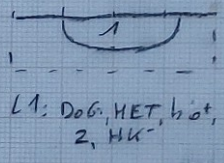 1
L1: DOG, HET, bot,
2, HK-